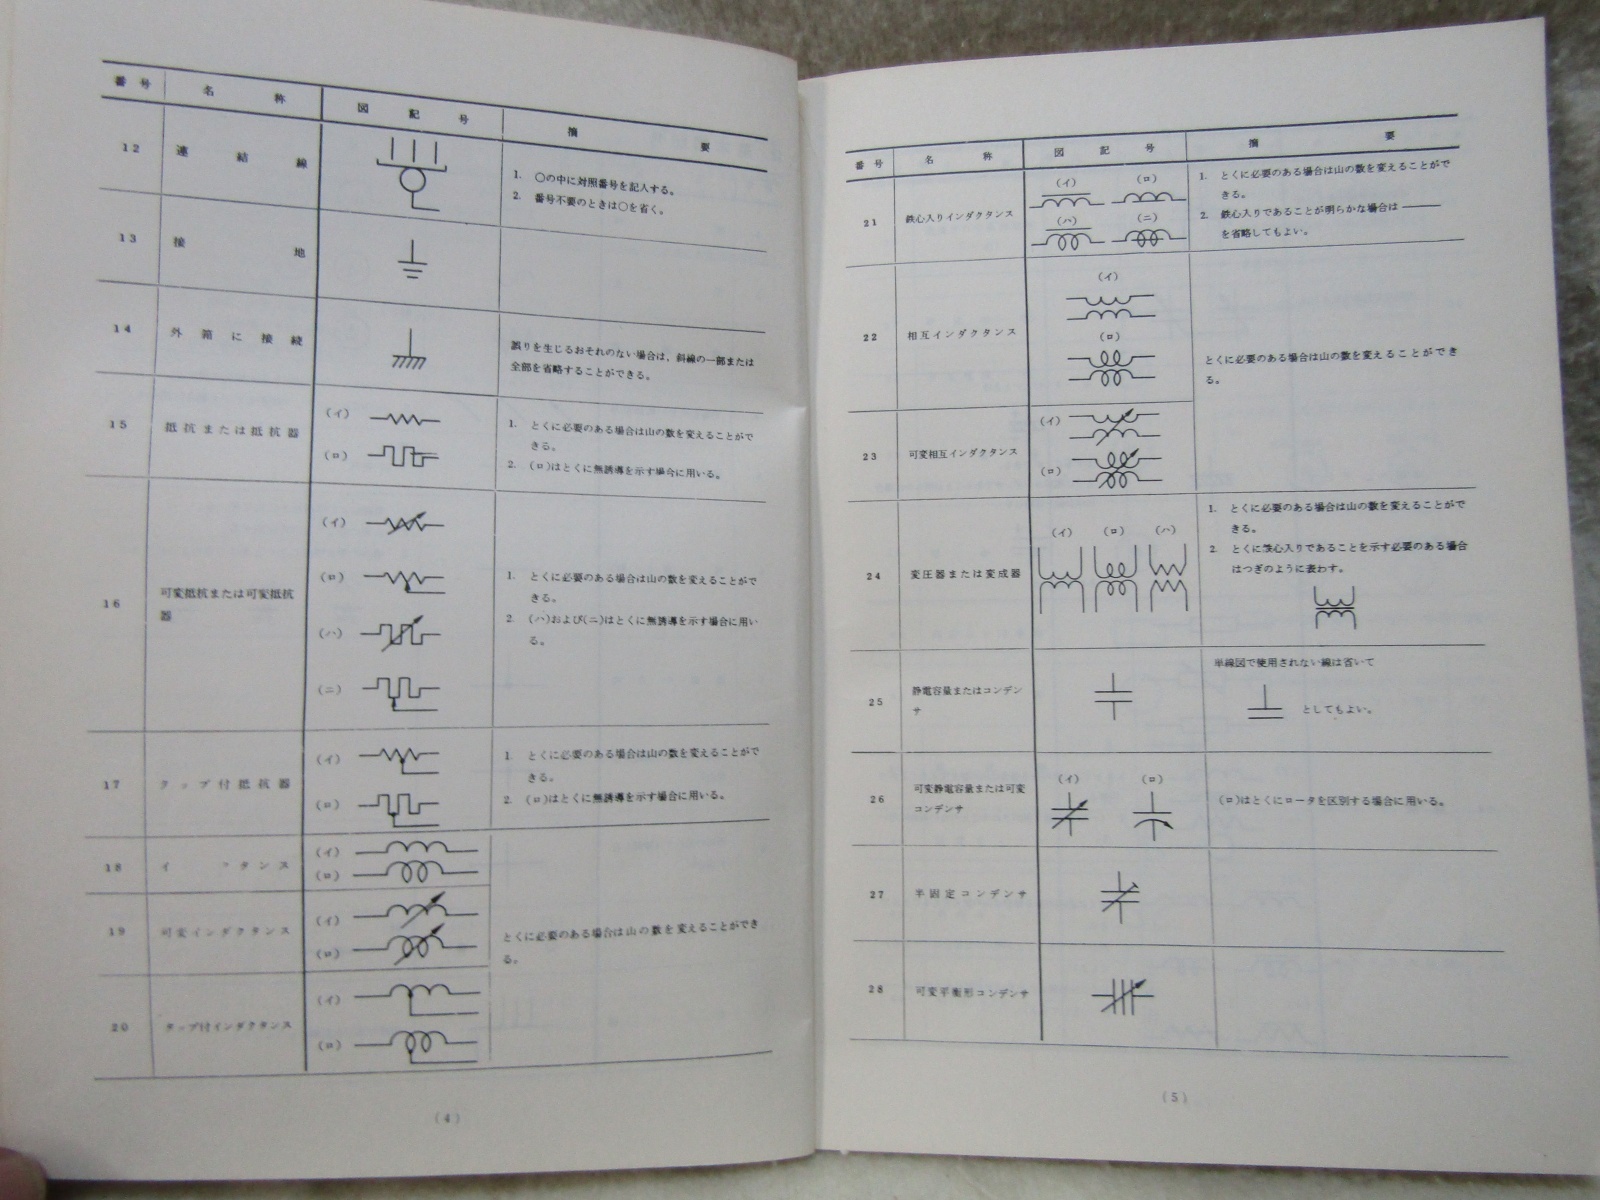 番号 名称 図記号 摘要
12 連結線
1. ○の中に対照番号を記入する。
2. 番号不要のときは○を省く。
13 接地
14 外箱に接続
誤りを生じるおそれのない場合は、斜線の一部または
全部を省略することができる。
15 抵抗または抵抗器
(イ)
(ロ)
1. とくに必要のある場合は山の数を変えることがで
きる。
2. (ロ)はとくに無誘導を示す場合に用いる。
16 可変抵抗または可変抵抗
器
(イ)
(ロ)
(ハ)
(ニ)
1. とくに必要のある場合は山の数を変えることがで
きる。
2. (ハ)および(ニ)はとくに無誘導を示す場合に用い
る。
17 タップ付抵抗器
(イ)
(ロ)
1. とくに必要のある場合は山の数を変えることがで
きる。
2. (ロ)はとくに無誘導を示す場合に用いる。
18 イ タンス
(イ)
(ロ)
19 可変インダクタンス
(イ)
(ロ)
とくに必要のある場合は山の数を変えることができ
る。
20 タップ付インダクタンス
(イ)
(ロ)
(4)
番号 名称 図記号 摘要
21 鉄心入りインダクタンス
(イ) (ロ)
(ハ) (ニ)
1. とくに必要のある場合は山の数を変えることがで
きる。
2. 鉄心入りであることが明らかな場合は ―――
を省略してもよい。
22 相互インダクタンス
(イ)
(ロ)
とくに必要のある場合は山の数を変えることができ
る。
23 可変相互インダクタンス
(イ)
(ロ)
24 変圧器または変成器
(イ) (ロ) (ハ)
1. とくに必要のある場合は山の数を変えることがで
きる。
2. とくに鉄心入りであることを示す必要のある場合
はつぎのように表わす。
25 静電容量またはコンデン
サ
単線図で使用されない線は省いて
としてもよい。
26 可変静電容量または可変
コンデンサ
(イ) (ロ)
(ロ)はとくにロータを区別する場合に用いる。
27 半固定コンデンサ
28 可変平衡形コンデンサ
(5)